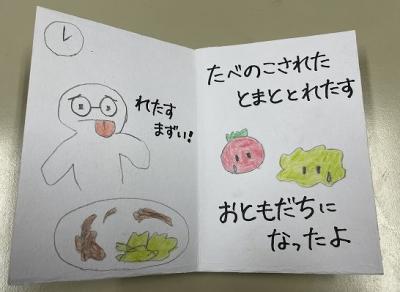 れたす
まずい!
たべのこされた
とまととれたす
おともだちに
なったよ